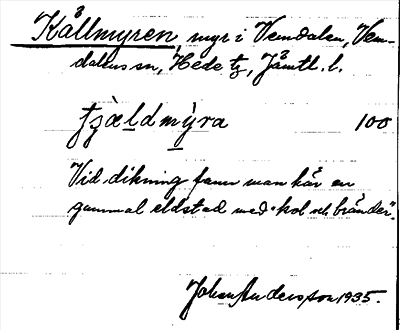 Kållmyren, myr i Vemdalen, Vem-
dalens sn, Hede tg, Jämtl. l.
tjældmỳra 100
Vid dikning fann man här en
gammal eldstad med "kol och bränder".
Johan Andersson 1935.